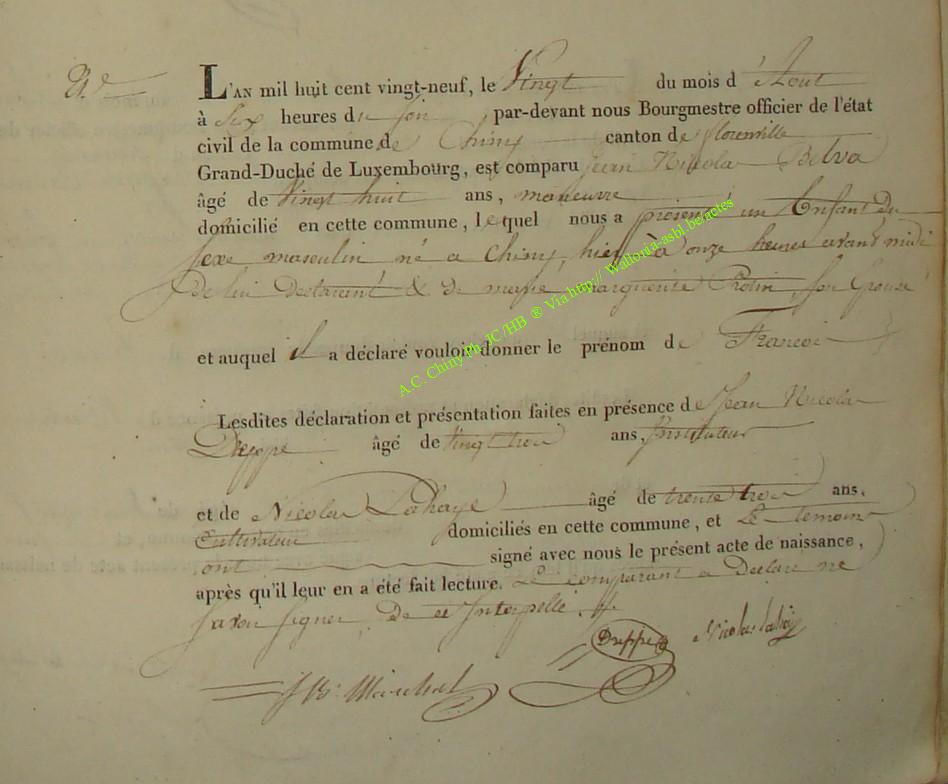 L'AN mil huit cent vingt-neuf, le Vingt du mois d'Aout
à Six heures du soir par-devant nous Bourgmestre officier de l'état
civil de la commune de Chiny canton de florenville
Grand-Duché de Luxembourg, est comparu Jean Nicolas Belva
âgé de Vingt huit ans, maneuvre
domicilié en cette commune, lequel nous a présenté un Enfant du
Sexe masculin né a Chiny, hier à onze heures avant midi
de lui declarant & de marie marguerite Rolin, son Epouse
et auquel il a déclaré vouloir donner le prénom de Francois
Lesdites déclaration et présentation faites en présence de Jean Nicolas
Dreppe âgé de Vingt trois ans, Instituteur
et de Nicolas Lahaye âgé de trente trois ans,
Cultivateur domiciliés en cette commune, et Les temoins
ont signé avec nous le présent acte de naissance,
après qu'il leur en a été fait lecture. Le comparant a Declaré ne
savoir signer De ce Interpellé
Dreppe Nicolas Lahay
J B. Maréchal
A.C. Chiny Ph. JC/HB ® Via http:// Wallonia-asbl.be/actes